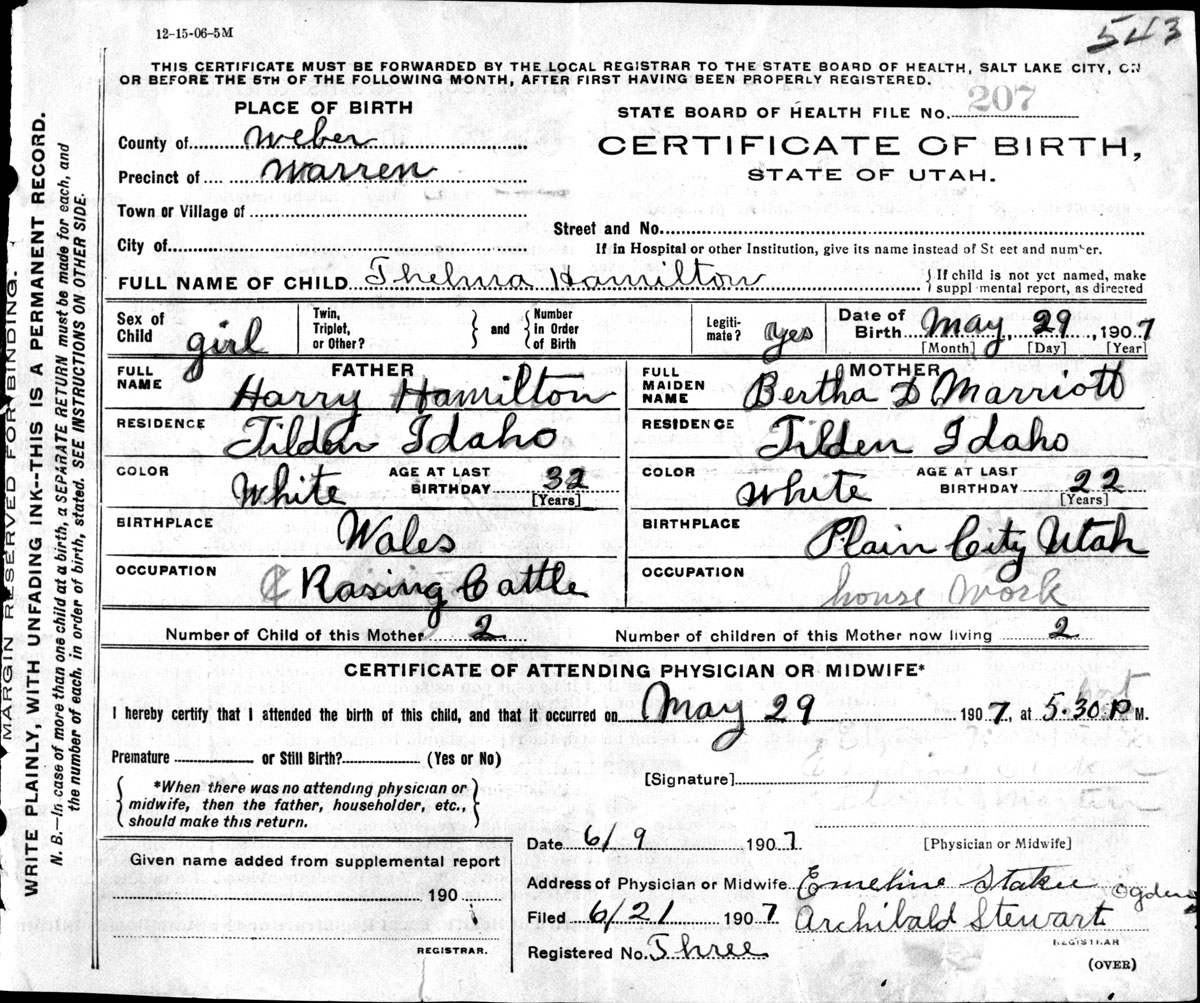 12-15-06-5M
543
THIS CERTIFICATE MUST BE FORWARDED BY THE LOCAL REGISTRAR TO THE STATE BOARD OF HEALTH, SALT LAKE CITY, ON
OR BEFORE THE 5TH OF THE FOLLOWING MONTH, AFTER FIRST HAVING BEEN PROPERLY REGISTERED.
PLACE OF BIRTH
STATE BOARD OF HEALTH FILE No. 207
County of Weber
CERTIFICATE OF BIRTH,
Precinct of Warren
STATE OF UTAH.
Town or Village of
Street and No.
City of
If in Hospital or other Institution, give its name instead of St eet and number.
FULL NAME OF CHILD Thelma Hamilton
If child is not yet named, make
suppl mental report, as directed
Sex of Child girl
Twin, Triplet, or Other?
and
Number in Order of Birth
Legiti-mate? yes
Date of Birth May 29, 1907
[Month] [Day] [Year]
FATHER
FULL NAME Harry Hamilton
RESIDENCE Tilden Idaho
COLOR White AGE AT LAST BIRTHDAY 32
[Years]
BIRTHPLACE Wales
OCCUPATION Rasing Cattle
MOTHER
FULL MAIDEN NAME Bertha D Marriott
RESIDENCE Tilden Idaho
COLOR White AGE AT LAST BIRTHDAY 22
[Years]
BIRTHPLACE Plain City Utah
OCCUPATION house work
Number of Child of this Mother 2
Number of children of this Mother now living 2
CERTIFICATE OF ATTENDING PHYSICIAN OR MIDWIFE*
I hereby certify that I attended the birth of this child, and that it occurred on May 29 1907, at 5.30 P M.
Premature or Still Birth? (Yes or No)
[Signature]
*When there was no attending physician or
midwife, then the father, householder, etc.,
should make this return.
Date 6/9 1907
[Physician or Midwife]
Given name added from supplemental report
190
REGISTRAR.
Address of Physician or Midwife Emeline Ogden
Filed 6/21 1907 Archibald Stewart
REGISTRAR
Registered No. Three
(OVER)
MARGIN RESERVED FOR BINDING.
WRITE PLAINLY, WITH UNFADING INK--THIS IS A PERMANENT RECORD.
N. B.—In case of more than one child at a birth, a SEPARATE RETURN must be made for each, and
the number of each, in order of birth, stated. SEE INSTRUCTIONS ON OTHER SIDE.